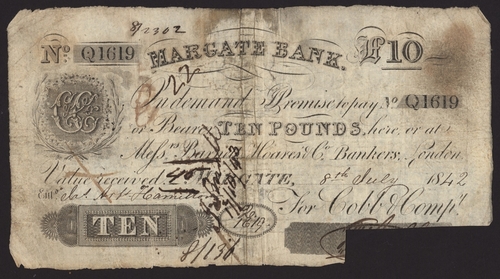 8/2302
MARGATE BANK.
£10
No. Q1619
22
On demand I Promise to pay No. Q1619
or Bearer TEN POUNDS, here, or at
Messrs. Barnett, Hoares & Co. Bankers, London
Value received. MARGATE, 8th July 1842
Entd.
For Cobb & Compy.
TEN
Q
1619